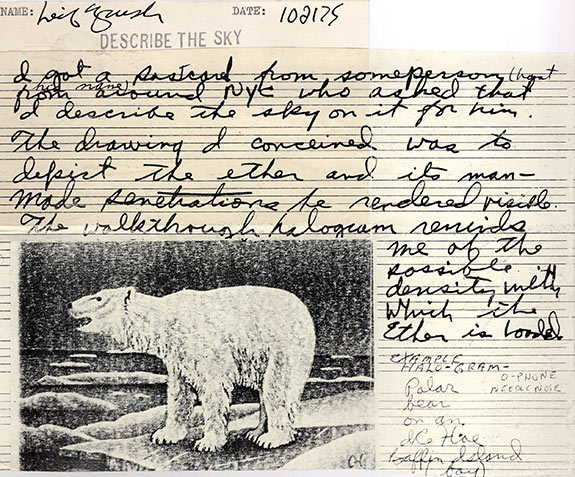 NAME: Leif Brush DATE: 102175
DESCRIBE THE SKY
I got a postcard from someperson (
from around NYC who asked that
I describe the sky on it for him.
The drawing I conceived was to
depict the ether and its man-
made penetrations be rendered visible.
The walkthrough halogram reminds
me of the
possible
density with
which the
Ether is loaded
EXAMPLE
HALO-GRAM-
O-PHONE
NEEDLENOSE
Polar
bear
on an
Ice
Baffin Island
bay)